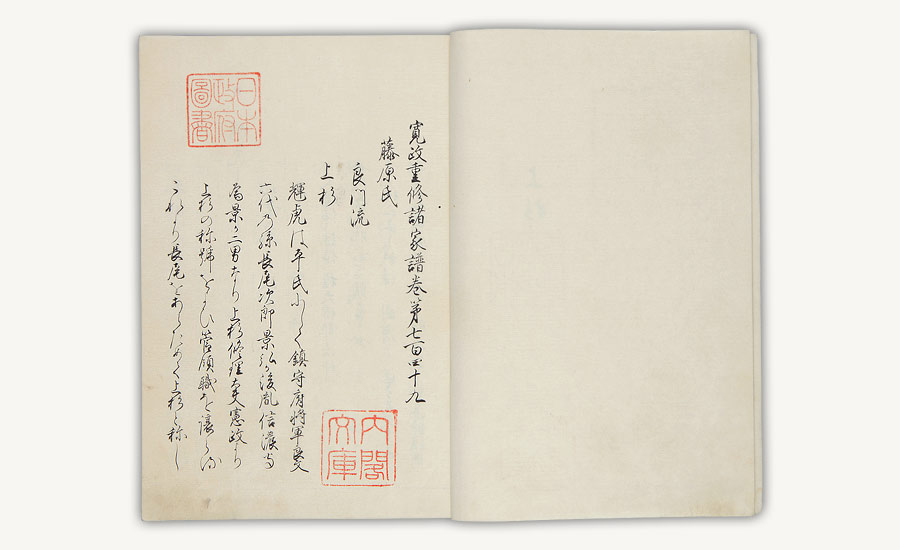 寛政重修諸家譜巻第七百四十九
藤原氏
良門流
上杉
輝虎は平氏にして鎮守府将軍良文
六代の孫長尾次郎景弘が後胤信濃守
為景が二男なり上杉修理大夫憲政より
上杉の称号をよひ管領職を譲らる
これより長尾をあらためて上杉と称し
日本
政府
圖書
内閣
文庫